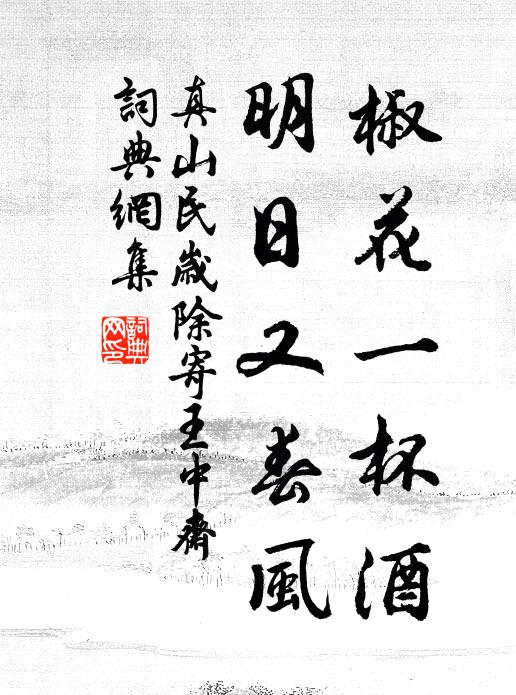 椒花一杯酒
明日又春風
真山民歲除寄王中齋
詞典網集
詞典網印